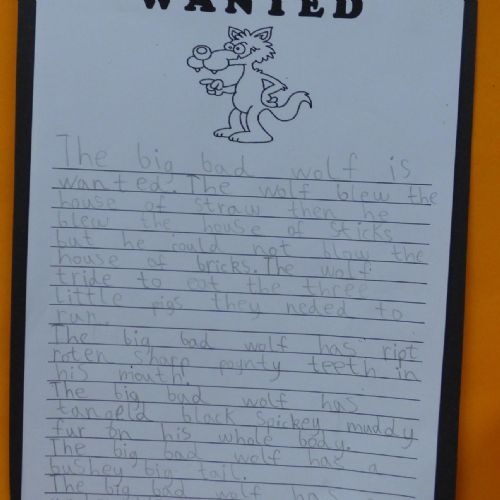 WANTED
The big bad wolf is
wanted. The wolf blew the
house of straw then he
blew the house of sticks
but he could not blow the
house of bricks. The wolf
tride to eat the three
little pigs they neded to
run.
The big bad wolf has ript
roten sharp poynty teeth in
his mouth.
The big bad wolf has
tangeld black spickey muddy
fur on his whole body.
The big bad wolf has a
bushey big tail.
The big bad wolf has